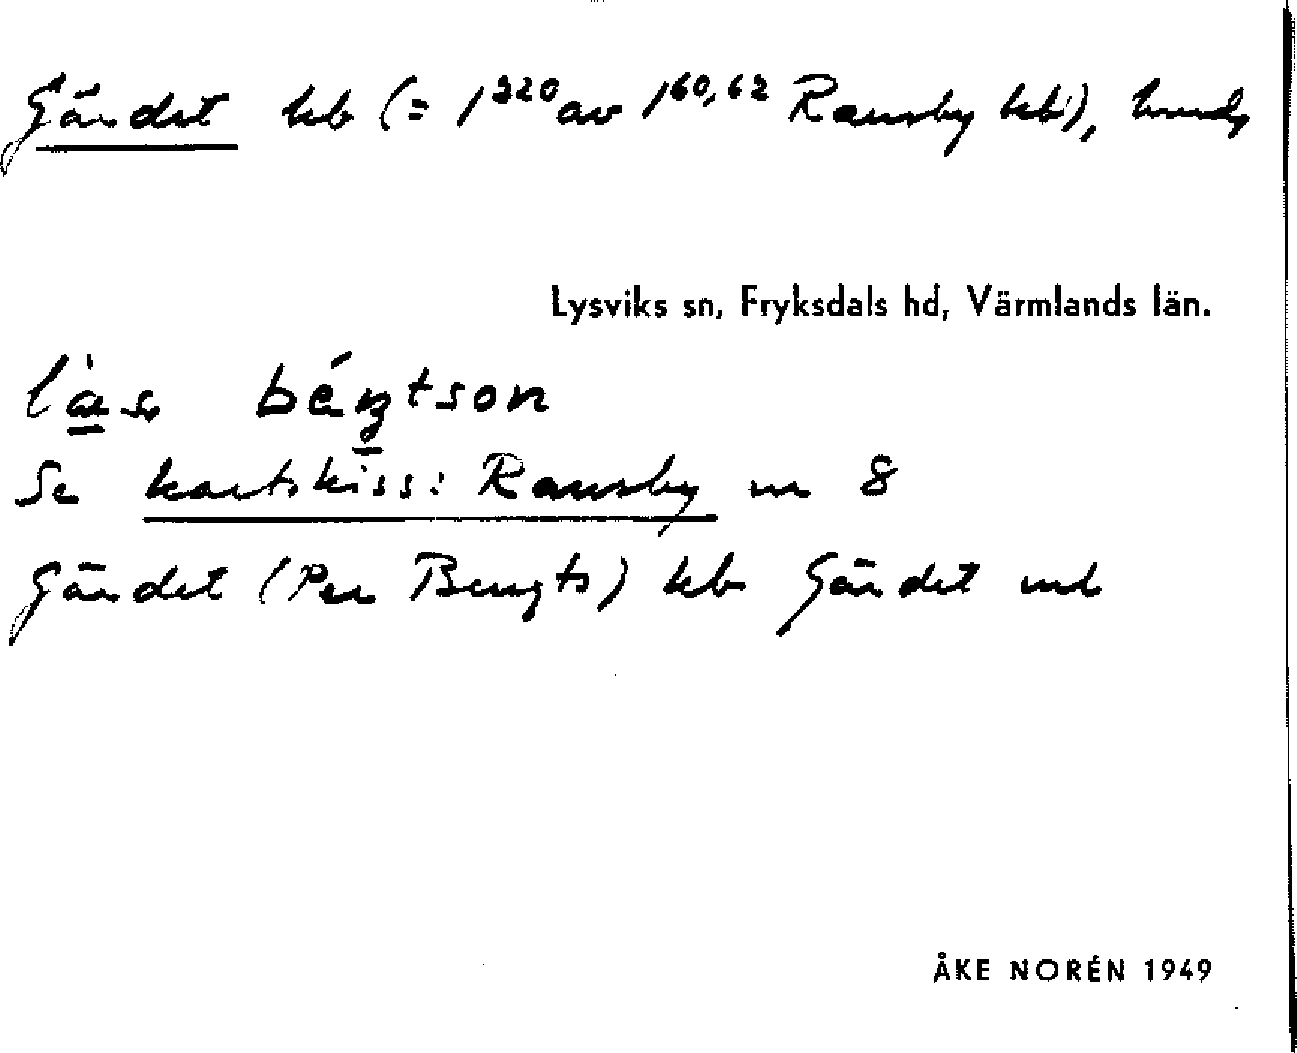 Gärdet kb (= 1³²⁰ av 1⁶⁰,⁶² Ransby kb),
Lysviks sn, Fryksdals hd, Värmlands län.
béŋtson
Se kartskiss: Ransby nr 8
Gärdet (Per Bengts) kb Gärdet mb
ÅKE NORÉN 1949